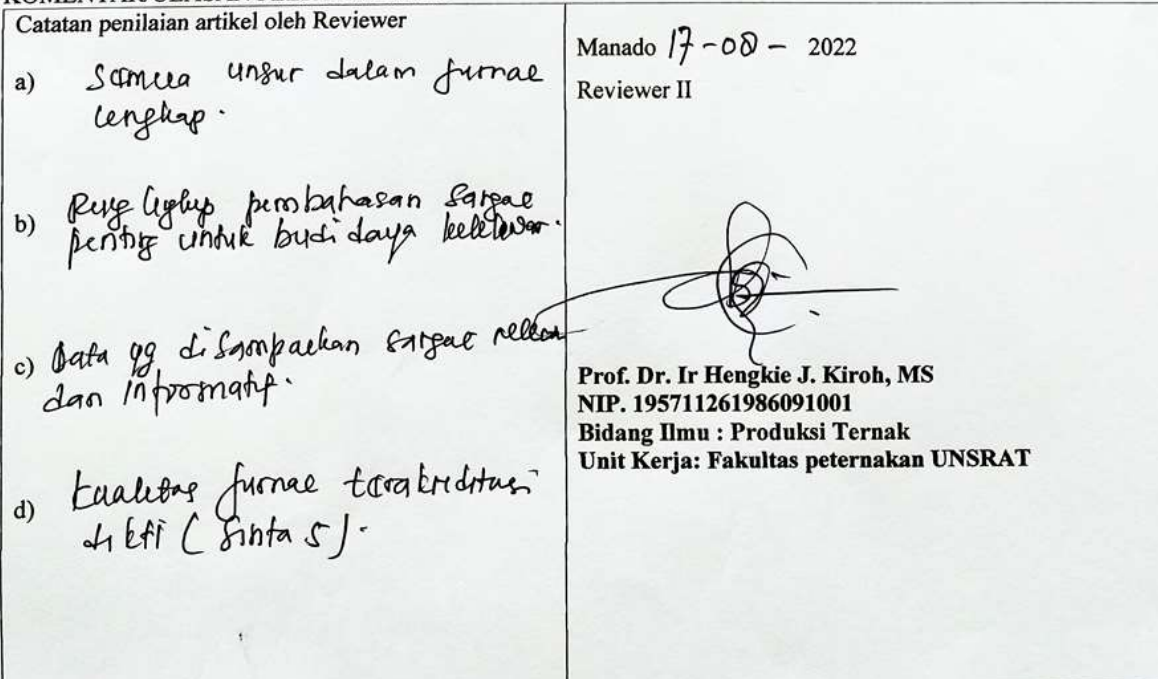 Catatan penilaian artikel oleh Reviewer
a) Semua unsur dalam jurnal
lengkap.
b) Ruang lingkup pembahasan sangat
penting untuk budidaya
c) Data yg disampaikan sangat relevan
dan informatif.
d) Kualitas jurnal terakreditasi
dikti (Sinta 5).
Manado 17-08- 2022
Reviewer II
Prof. Dr. Ir Hengkie J. Kiroh, MS
NIP. 195711261986091001
Bidang Ilmu : Produksi Ternak
Unit Kerja: Fakultas peternakan UNSRAT